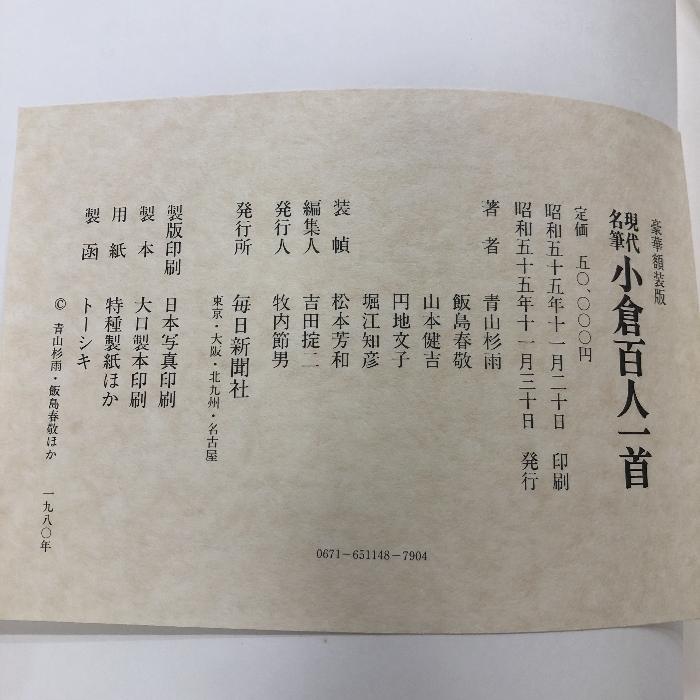 豪華額装版
現代名筆 小倉百人一首
定価 五〇、〇〇〇円
昭和五十五年十一月二十日 印刷
昭和五十五年十一月三十日 発行
著者 青山杉雨
飯島春敬
山本健吉
円地文子
堀江知彦
装幀 松本芳和
編集人 吉田掟二
発行人 牧内節男
発行所 毎日新聞社
東京・大阪・北九州・名古屋
製版印刷 日本写真印刷
製本 大口製本印刷
用紙 特種製紙ほか
製函 トーシキ
© 青山杉雨・飯島春敬ほか 一九八〇年
0671-651148-7904